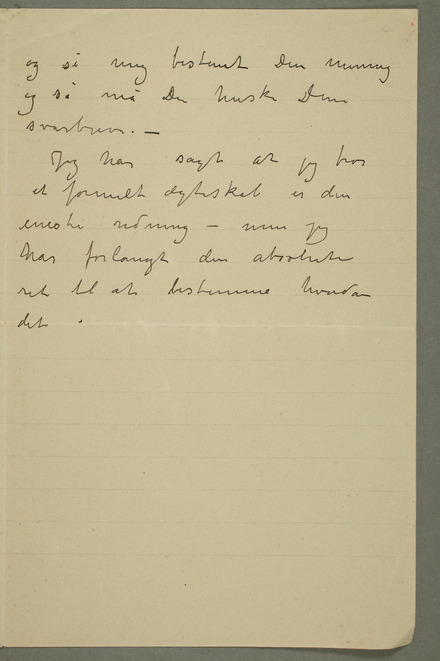 og si mig bestemt Din mening
og så må Du huske Dine
svarbreve. —
Jeg har sagt at jeg tror
et formelt ægteskab er den
eneste redning — men jeg
har forlangt den absolute
ret til at bestemme hvordan
det .